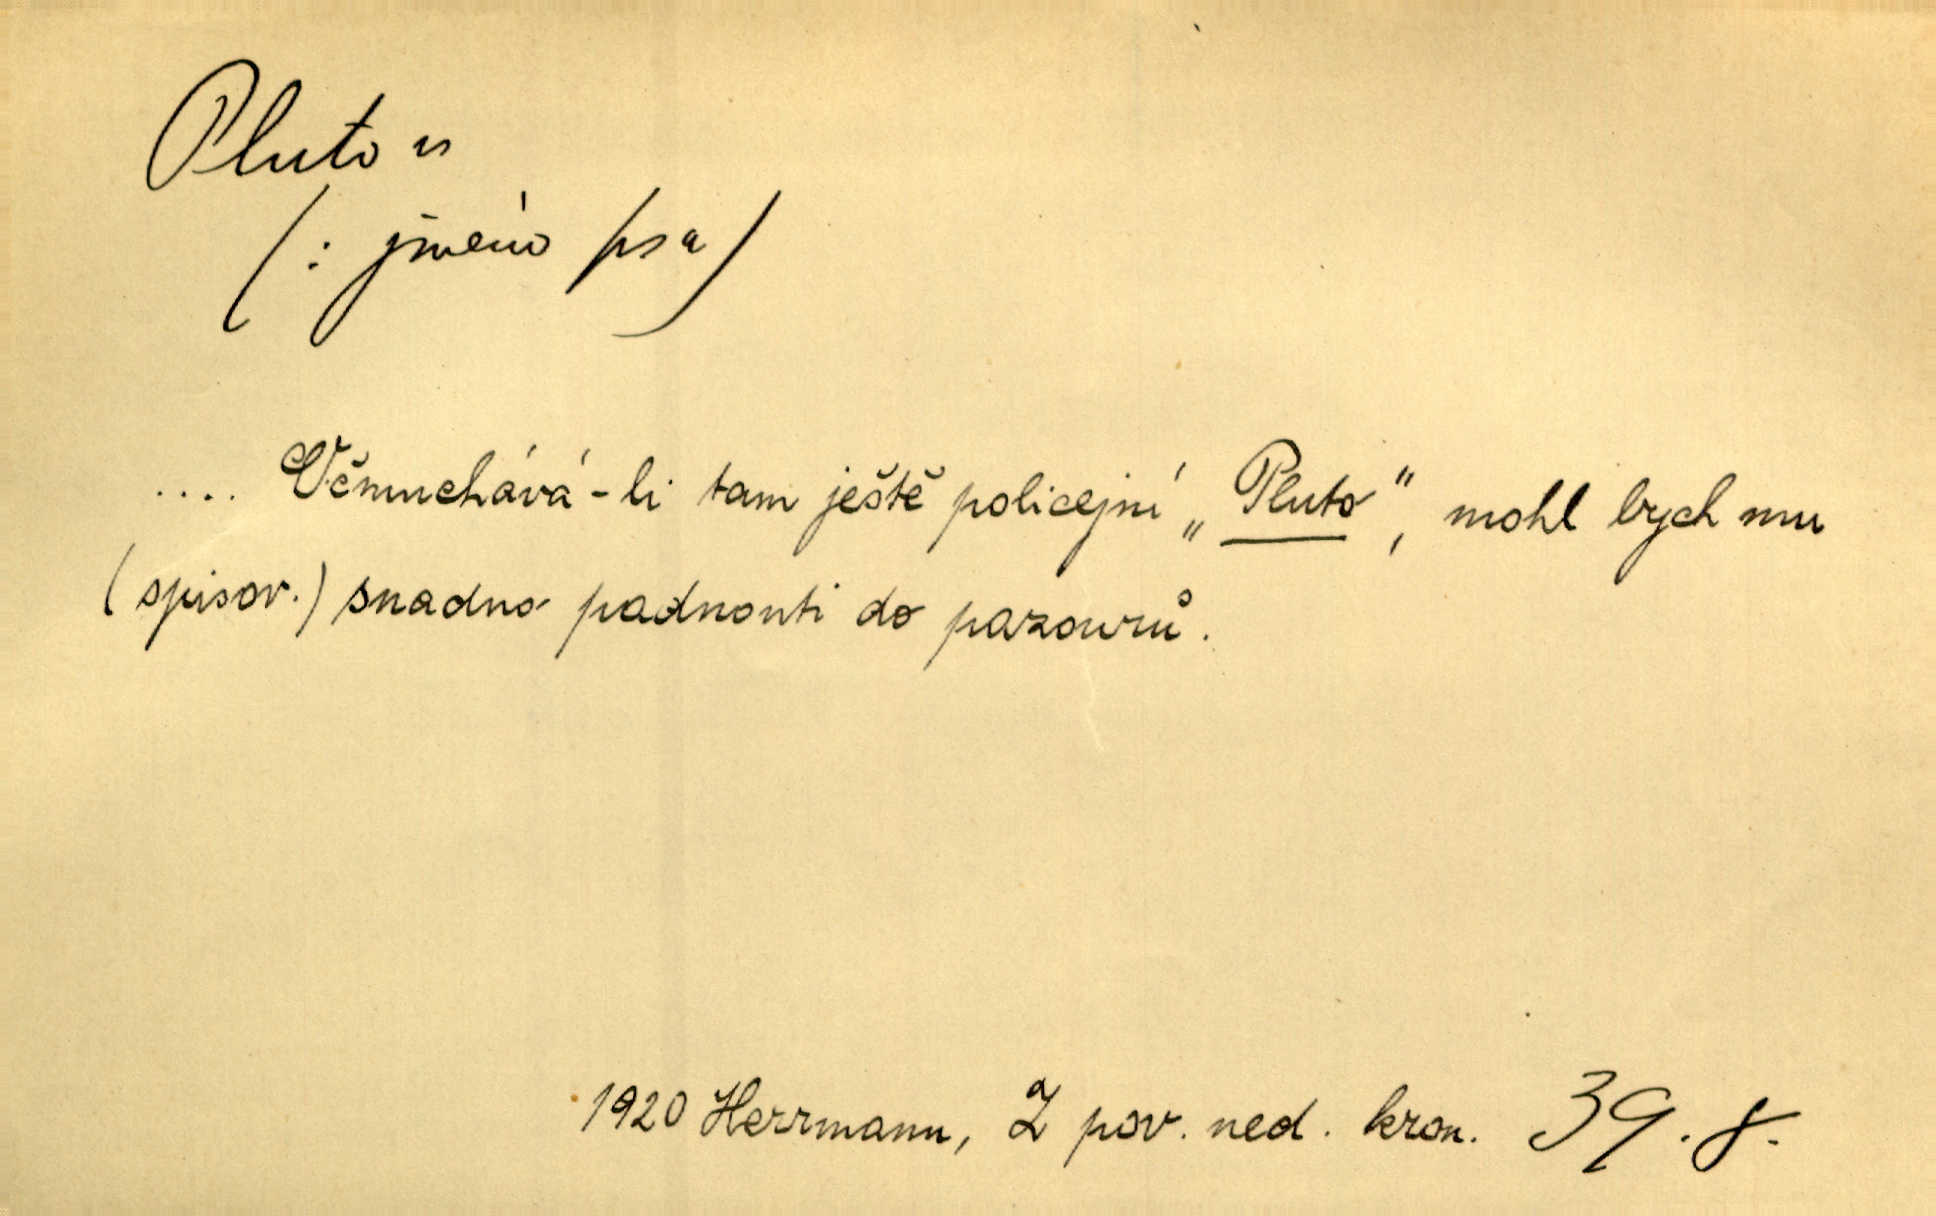 Pluto m
(: jméno psa)
.... Včmuchává-li tam ještě policejní „Pluto“, mohl bych mu
(spisov.) snadno padnouti do pazourů.
1920 Herrmann, Z pov. ned. kron. 39. 8.